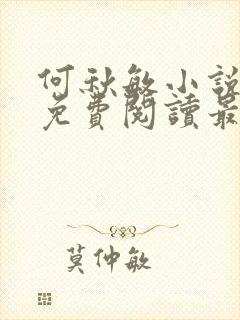 何秋敏小說
免費閱讀最
莫仲敏